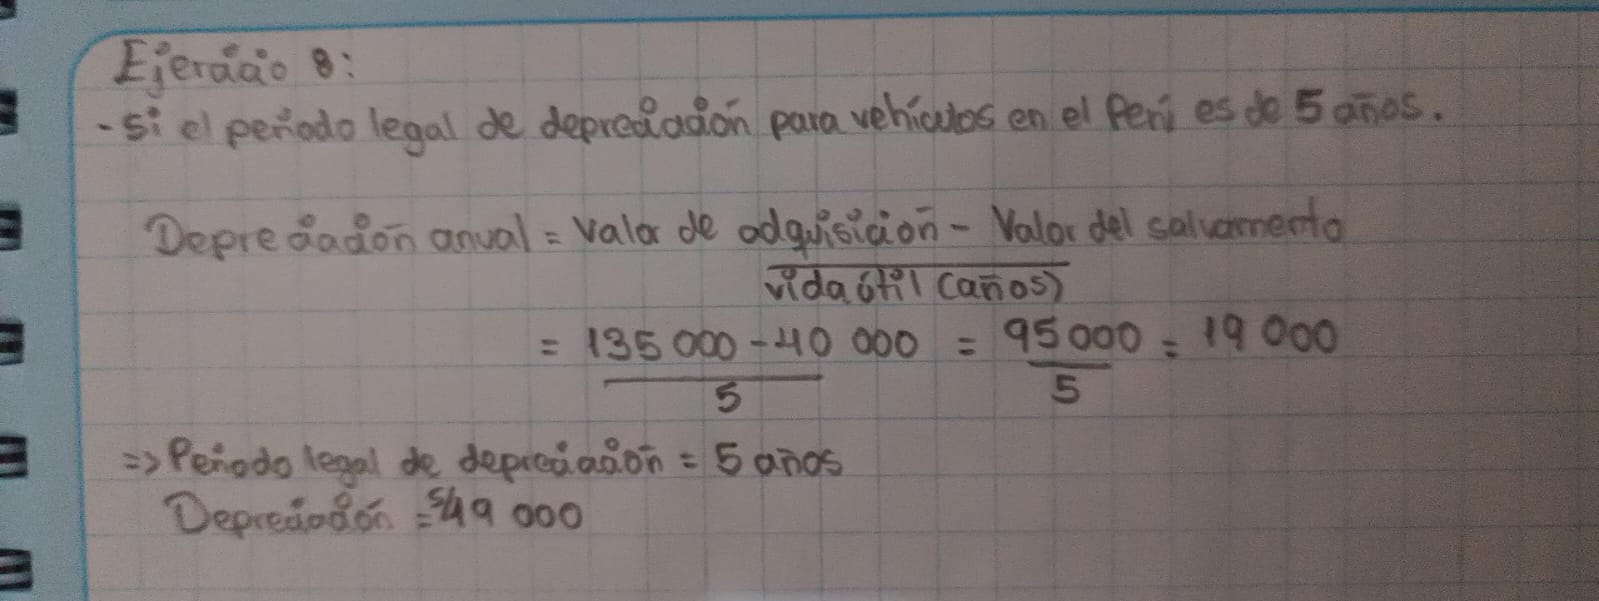 Ejercicio 8:
- Si el periodo legal de depreciación para vehículos en el Perú es de 5 años.
Depreciación anual = Valor de adquisición - Valor del salvamento
vida útil (años)
= 135 000 - 40 000 = 95 000 = 19 000
5 5
=> Periodo legal de depreciación = 5 años
Depreciación = S/19 000